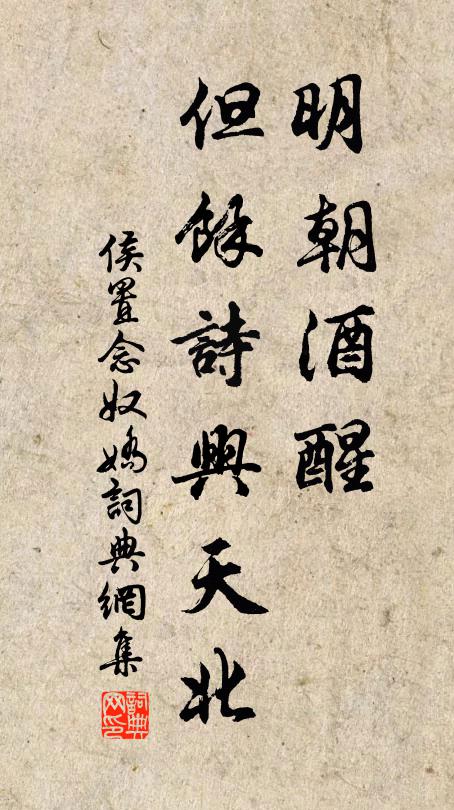 明朝酒醒
但餘詩興天北
侯置念奴嬌詞典網集
詞典网印